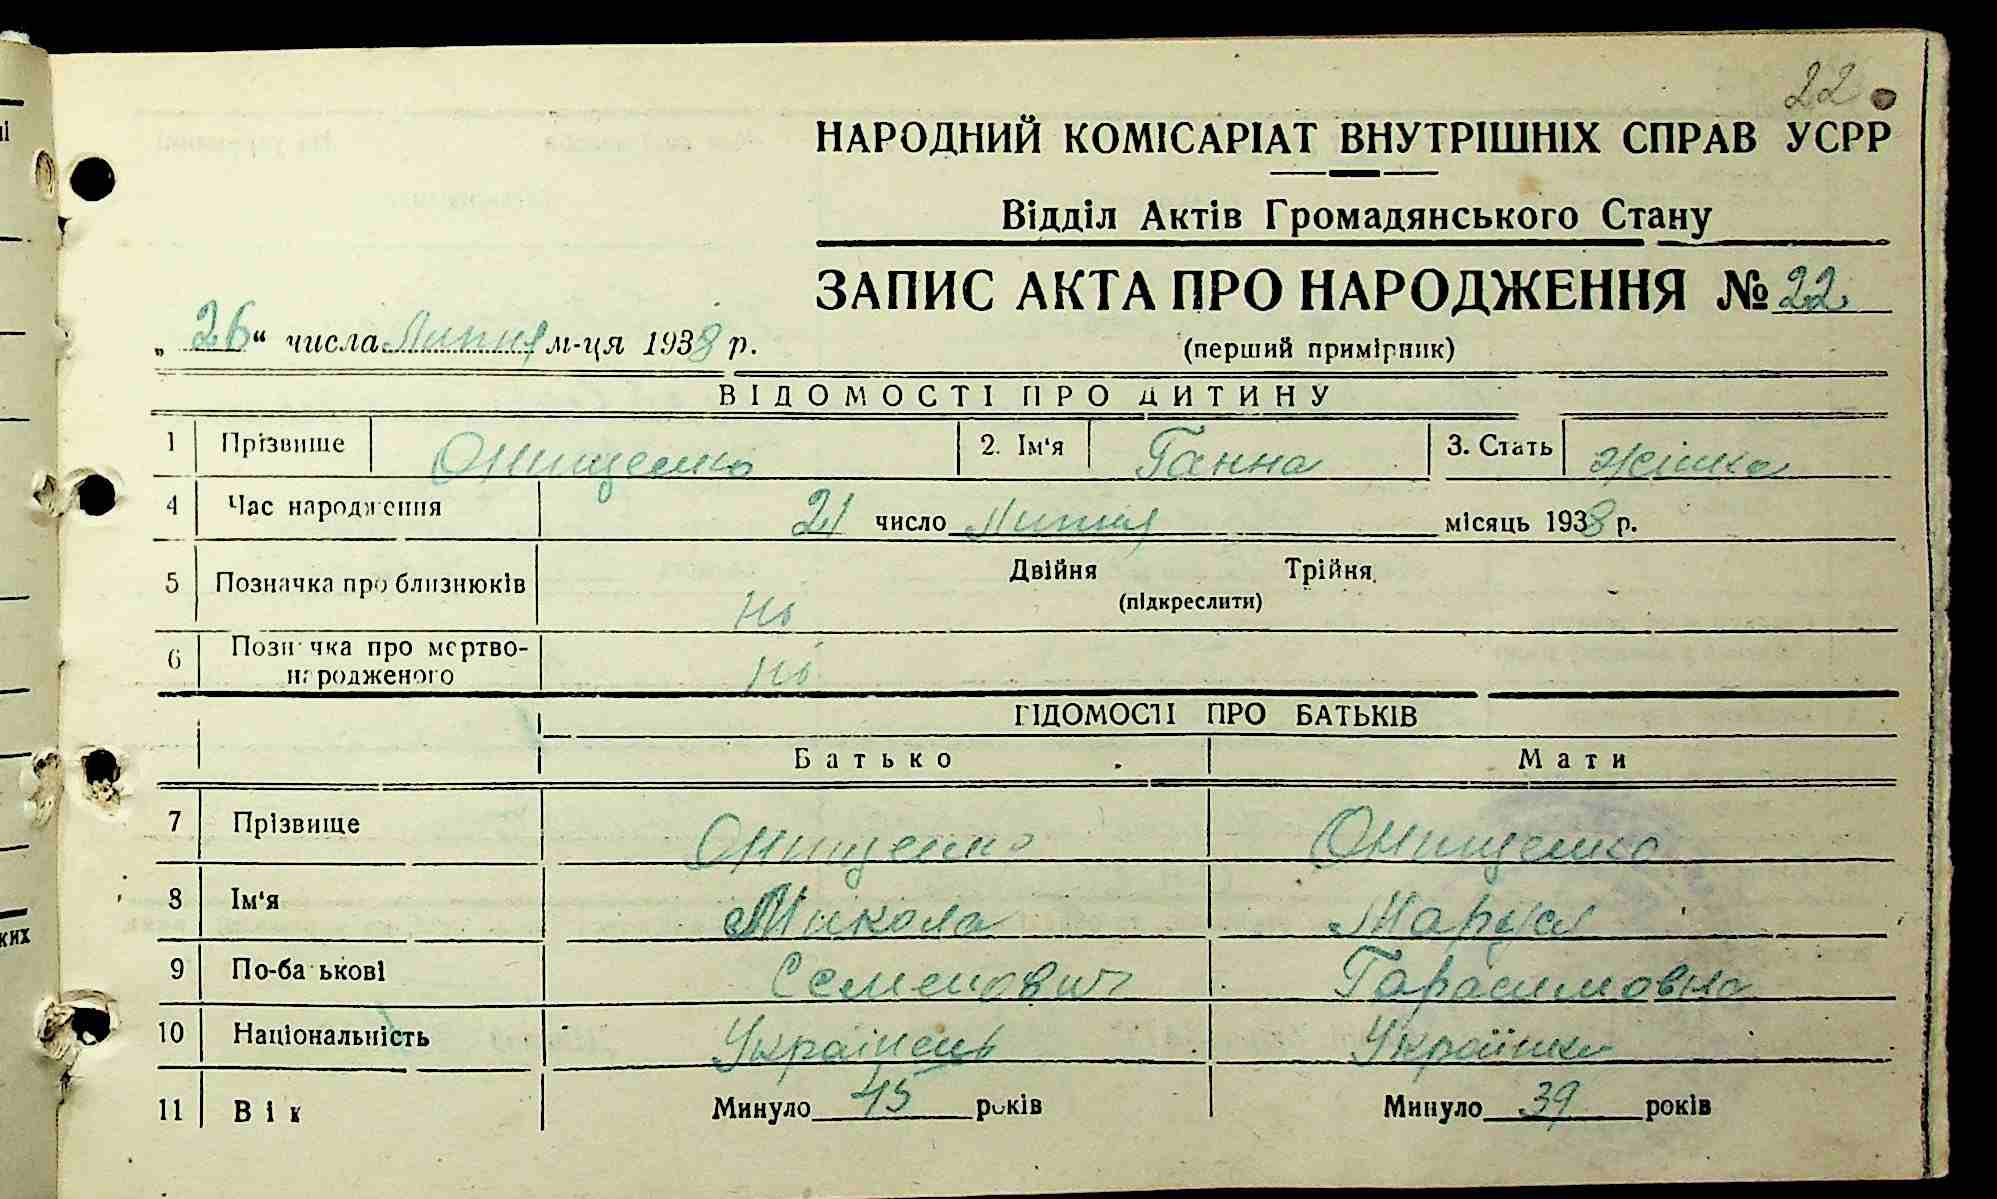 22
НАРОДНИЙ КОМІСАРІАТ ВНУТРІШНІХ СПРАВ УСРР
Відділ Актів Громадянського Стану
ЗАПИС АКТА ПРО НАРОДЖЕННЯ № 22
„ 26 “ числа Липня м-ця 1938 р.
(перший примірник)
ВІДОМОСТІ ПРО ДИТИНУ
1 Прізвище Онищенко 2. Ім'я Ганна 3. Стать жінка
4 Час народження 21 число Липня місяць 1938 р.
5 Позначка про близнюків Ні Двійня Трійня
(підкреслити)
6 Позначка про мертво-
народженого Ні
ВІДОМОСТІ ПРО БАТЬКІВ
Батько Мати
7 Прізвище Онищенко Онищенко
8 Ім'я Микола Маруся
9 По-батькові Семенович Гарасимовна
10 Національність Українець Українка
11 Вік Минуло 45 років Минуло 39 років
ких